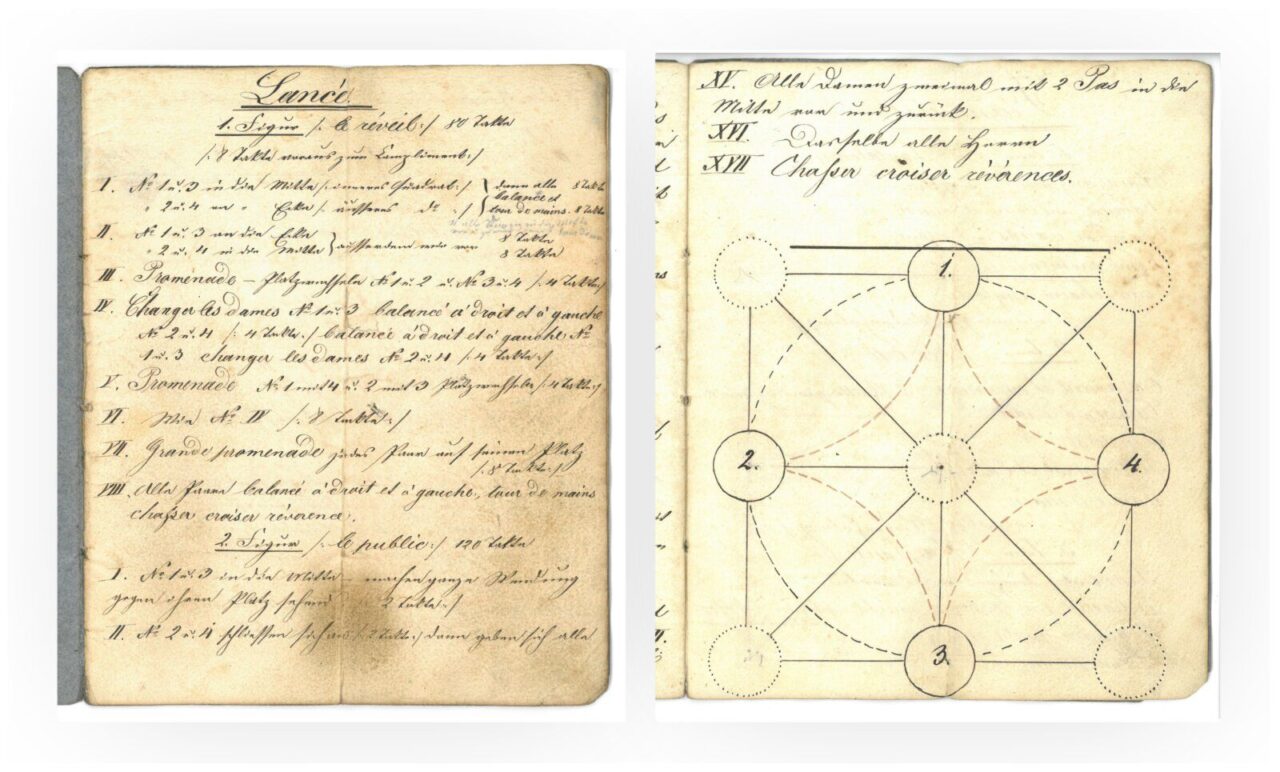 Lancé.
1. Figur /: le réveil :/ 80 Takte
/: 8 Takte voraus zum Compliment :/
I. No 1 u. 3 in die Mitte /: inneres Quadrat :/ } dann alle 8 Takte
" 2 u. 4 an " Ecke /: äusseres do :/ } balancé et
tour de mains. 8 Takte
II. No 1 u. 3 an die Ecke 8 Takte
" 2 u. 4 in die Mitte } ausserdem wie vor 8 Takte
III. Promenade – Platzwechseln No 1 u. 2 u. No 3 u. 4 /: 4 Takte :/
IV. Changer les dames No 1 u. 3 balancé à droit et à gauche
No 2 u. 4 /: 4 Takte :/ balancé à droit et à gauche No
1 u. 3 changer les dames No 2 u. 4 /: 4 Takte :/
V. Promenade No 1 mit 4 u. 2 mit 3 Platzwechseln /: 4 Takte :/
VI. Wie No IV /: 8 Takte :/
VII. Grande promenade jedes Paar auf seinen Platz
/: 8 Takte :/
VIII. Alle Paare balancé à droit et à gauche, tour de mains
chaßer croiser révérence.
2. Figur /: le public :/ 120 Takte
I. No 1 u. 3 in die Mitte – machen ganze Wendung
gegen ihren Platz sehend 2 Takte :/
II. No 2 u. 4 schliessen sich an /: 2 Takte :/ dann geben sich alle
XV. Alle Damen zweimal mit 2 Pas in die
Mitte vor und zurück.
XVI. Dasselbe alle Herrn
XVII Chaßer croiser révérences.
1.
2.
4.
3.